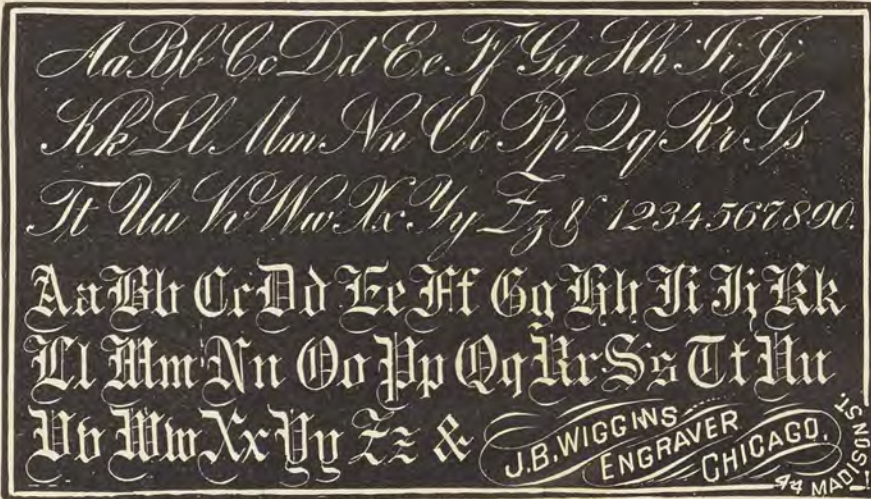 Aa Bb Cc Dd Ee Ff Gg Hh Ii Jj
Kk Ll Mm Nn Oo Pp Qq Rr Ss
Tt Uu Vv Ww Xx Yy Zz & 1234567890.
Aa Bb Cc Dd Ee Ff Gg Hh Ii Jj Kk
Ll Mm Nn Oo Pp Qq Rr Ss Tt Uu
Vv Ww Xx Yy Zz &
J.B. WIGGINS
ENGRAVER
CHICAGO.
44 MADISON ST.